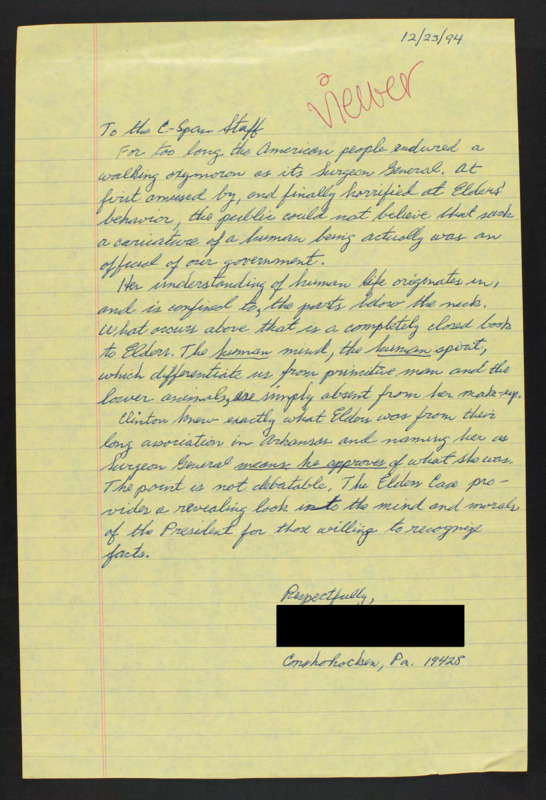 12/23/94
viewer
To the C-Span Staff
For too long the American people endured a
walking oxymoron as its Surgeon General. At
first amused by, and finally horrified at Elders'
behavior, the public could not believe that such
a caricature of a human being actually was an
official of our government.
Her understanding of human life originates in,
and is confined to, the parts below the neck.
What occurs above that is a completely closed book
to Elders. The human mind, the human spirit,
which differentiate us from primitive man and the
lower animals, are simply absent from her make-up.
Clinton knew exactly what Elders was from their
long association in Arkansas and naming her as
Surgeon General means he approves of what she was.
The point is not debatable. The Elders Case pro-
vides a revealing look into the mind and morals
of the President for those willing to recognize
facts.
Respectfully,
Conshohocken, Pa. 19428